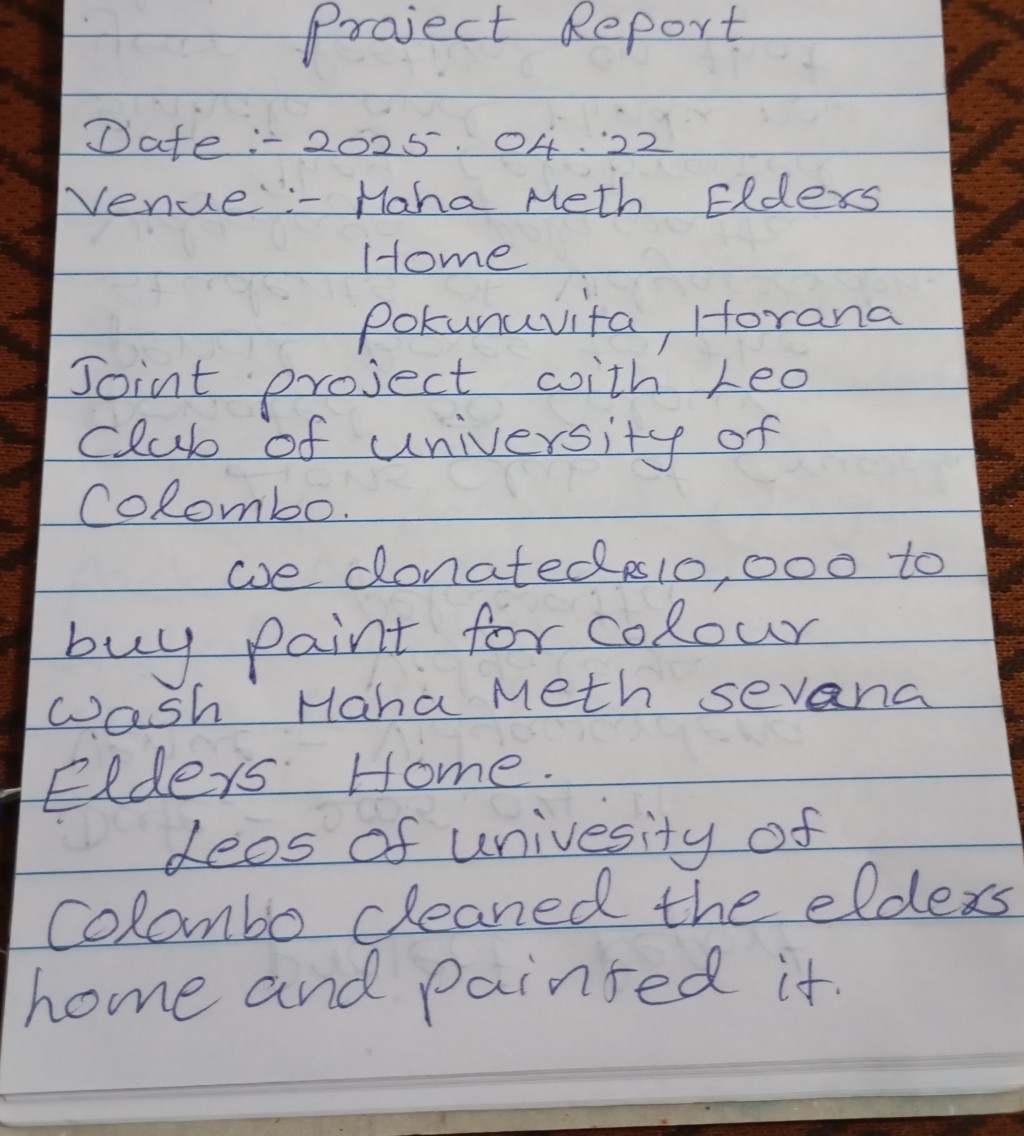 Project Report
Date :- 2025. 04. 22
Venue :- Maha Meth Elders
Home
Pokunuvita, Horana
Joint project with Leo
Club of university of
Colombo.
we donated Rs10,000 to
buy paint for colour
wash Maha Meth sevana
Elders Home.
Leos of univesity of
Colombo cleaned the elders
home and painted it.